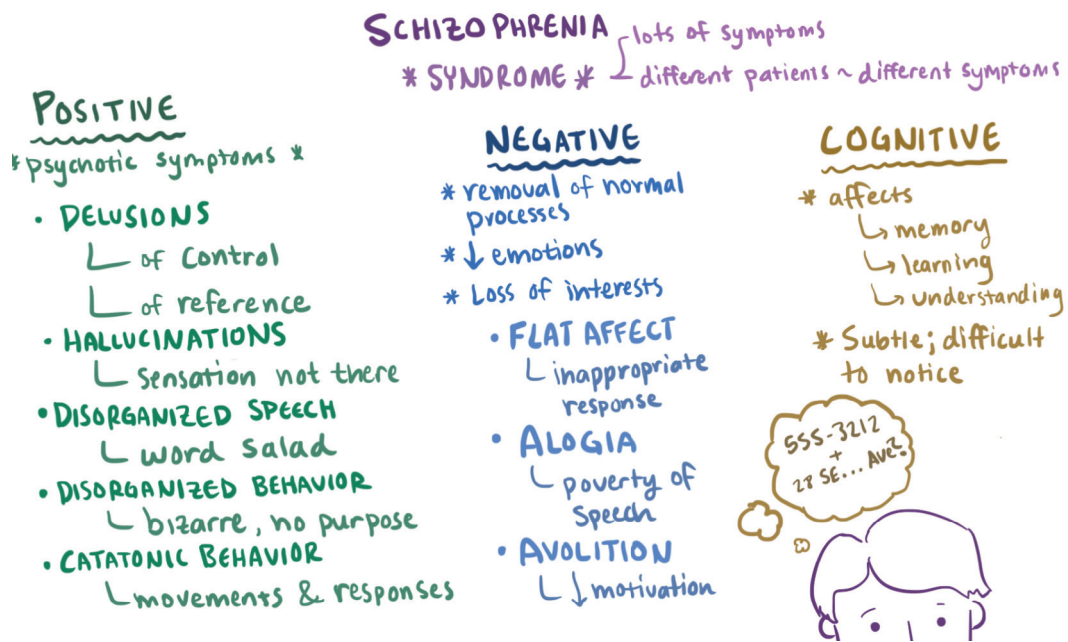 SCHIZOPHRENIA
lots of symptoms
* SYNDROME *
different patients ~ different symptoms
POSITIVE
* psychotic symptoms *
• DELUSIONS
of control
of reference
• HALLUCINATIONS
sensation not there
• DISORGANIZED SPEECH
word salad
• DISORGANIZED BEHAVIOR
bizarre, no purpose
• CATATONIC BEHAVIOR
movements & responses
NEGATIVE
* removal of normal
processes
* ↓ emotions
* Loss of interests
• FLAT AFFECT
inappropriate
response
• ALOGIA
poverty of
speech
• AVOLITION
↓ motivation
COGNITIVE
* affects
↳ memory
↳ learning
↳ understanding
* Subtle; difficult
to notice
555-3212
+
28 SE... Ave?